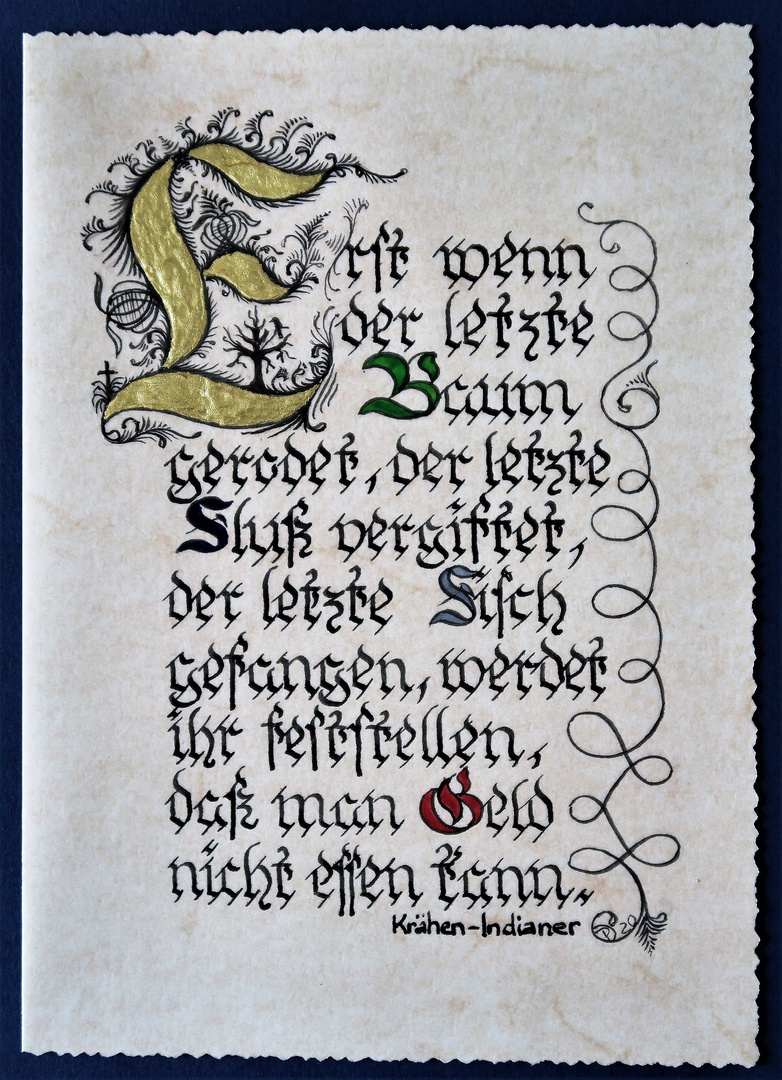 Erst wenn
der letzte
Baum
gerodet, der letzte
Fluß vergiftet,
der letzte Fisch
gefangen, werdet
ihr feststellen,
daß man Geld
nicht essen kann.
Krähen-Indianer